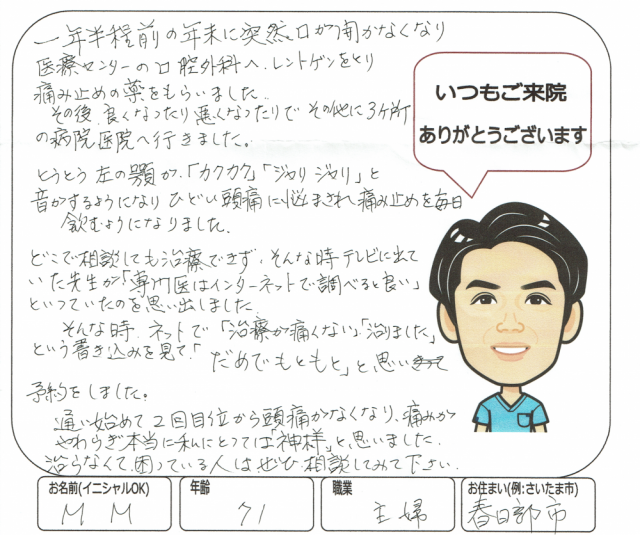 一年半程前の年末に突然口が開かなくなり
医療センターの口腔外科へ、レントゲンをとり
痛み止めの薬をもらいました。
その後、良くなったり悪くなったりで その他に3ヶ所
の病院、医院へ行きました。
とうとう左の顎が、「カクカク」「ジャリジャリ」と
音がするようになり ひどい頭痛に悩まされ痛み止めを毎日
飲むようになりました。
どこで相談しても治療できず、そんな時テレビに出て
いた先生が「専門医はインターネットで調べると良い」
といっていたのを思い出しました。
そんな時、ネットで「治療が痛くない」「治りました」
という書き込みを見て「だめでもともと」と思い
予約をしました。
通い始めて2回目位から頭痛がなくなり、痛みが
やわらぎ本当に私にとっては「神様」と思いました。
治らなくて困っている人は、ぜひ相談してみて下さい。
いつもご来院
ありがとうございます
お名前(イニシャルOK) 年齢 職業 お住まい(例:さいたま市)
M M 71 主婦 春日部市